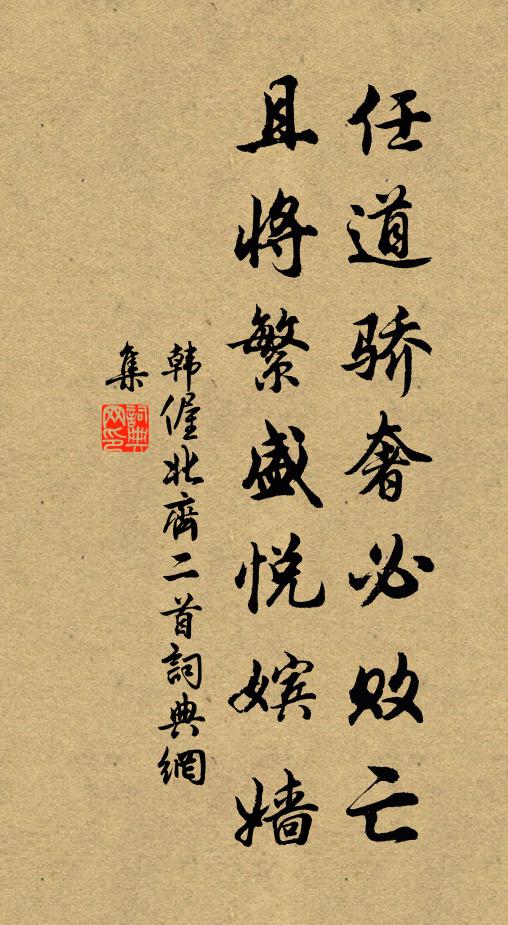 任道骄奢必败亡
且将繁盛悦嫔嫱
韩偓北齊二首詞典網
集
詞典网印